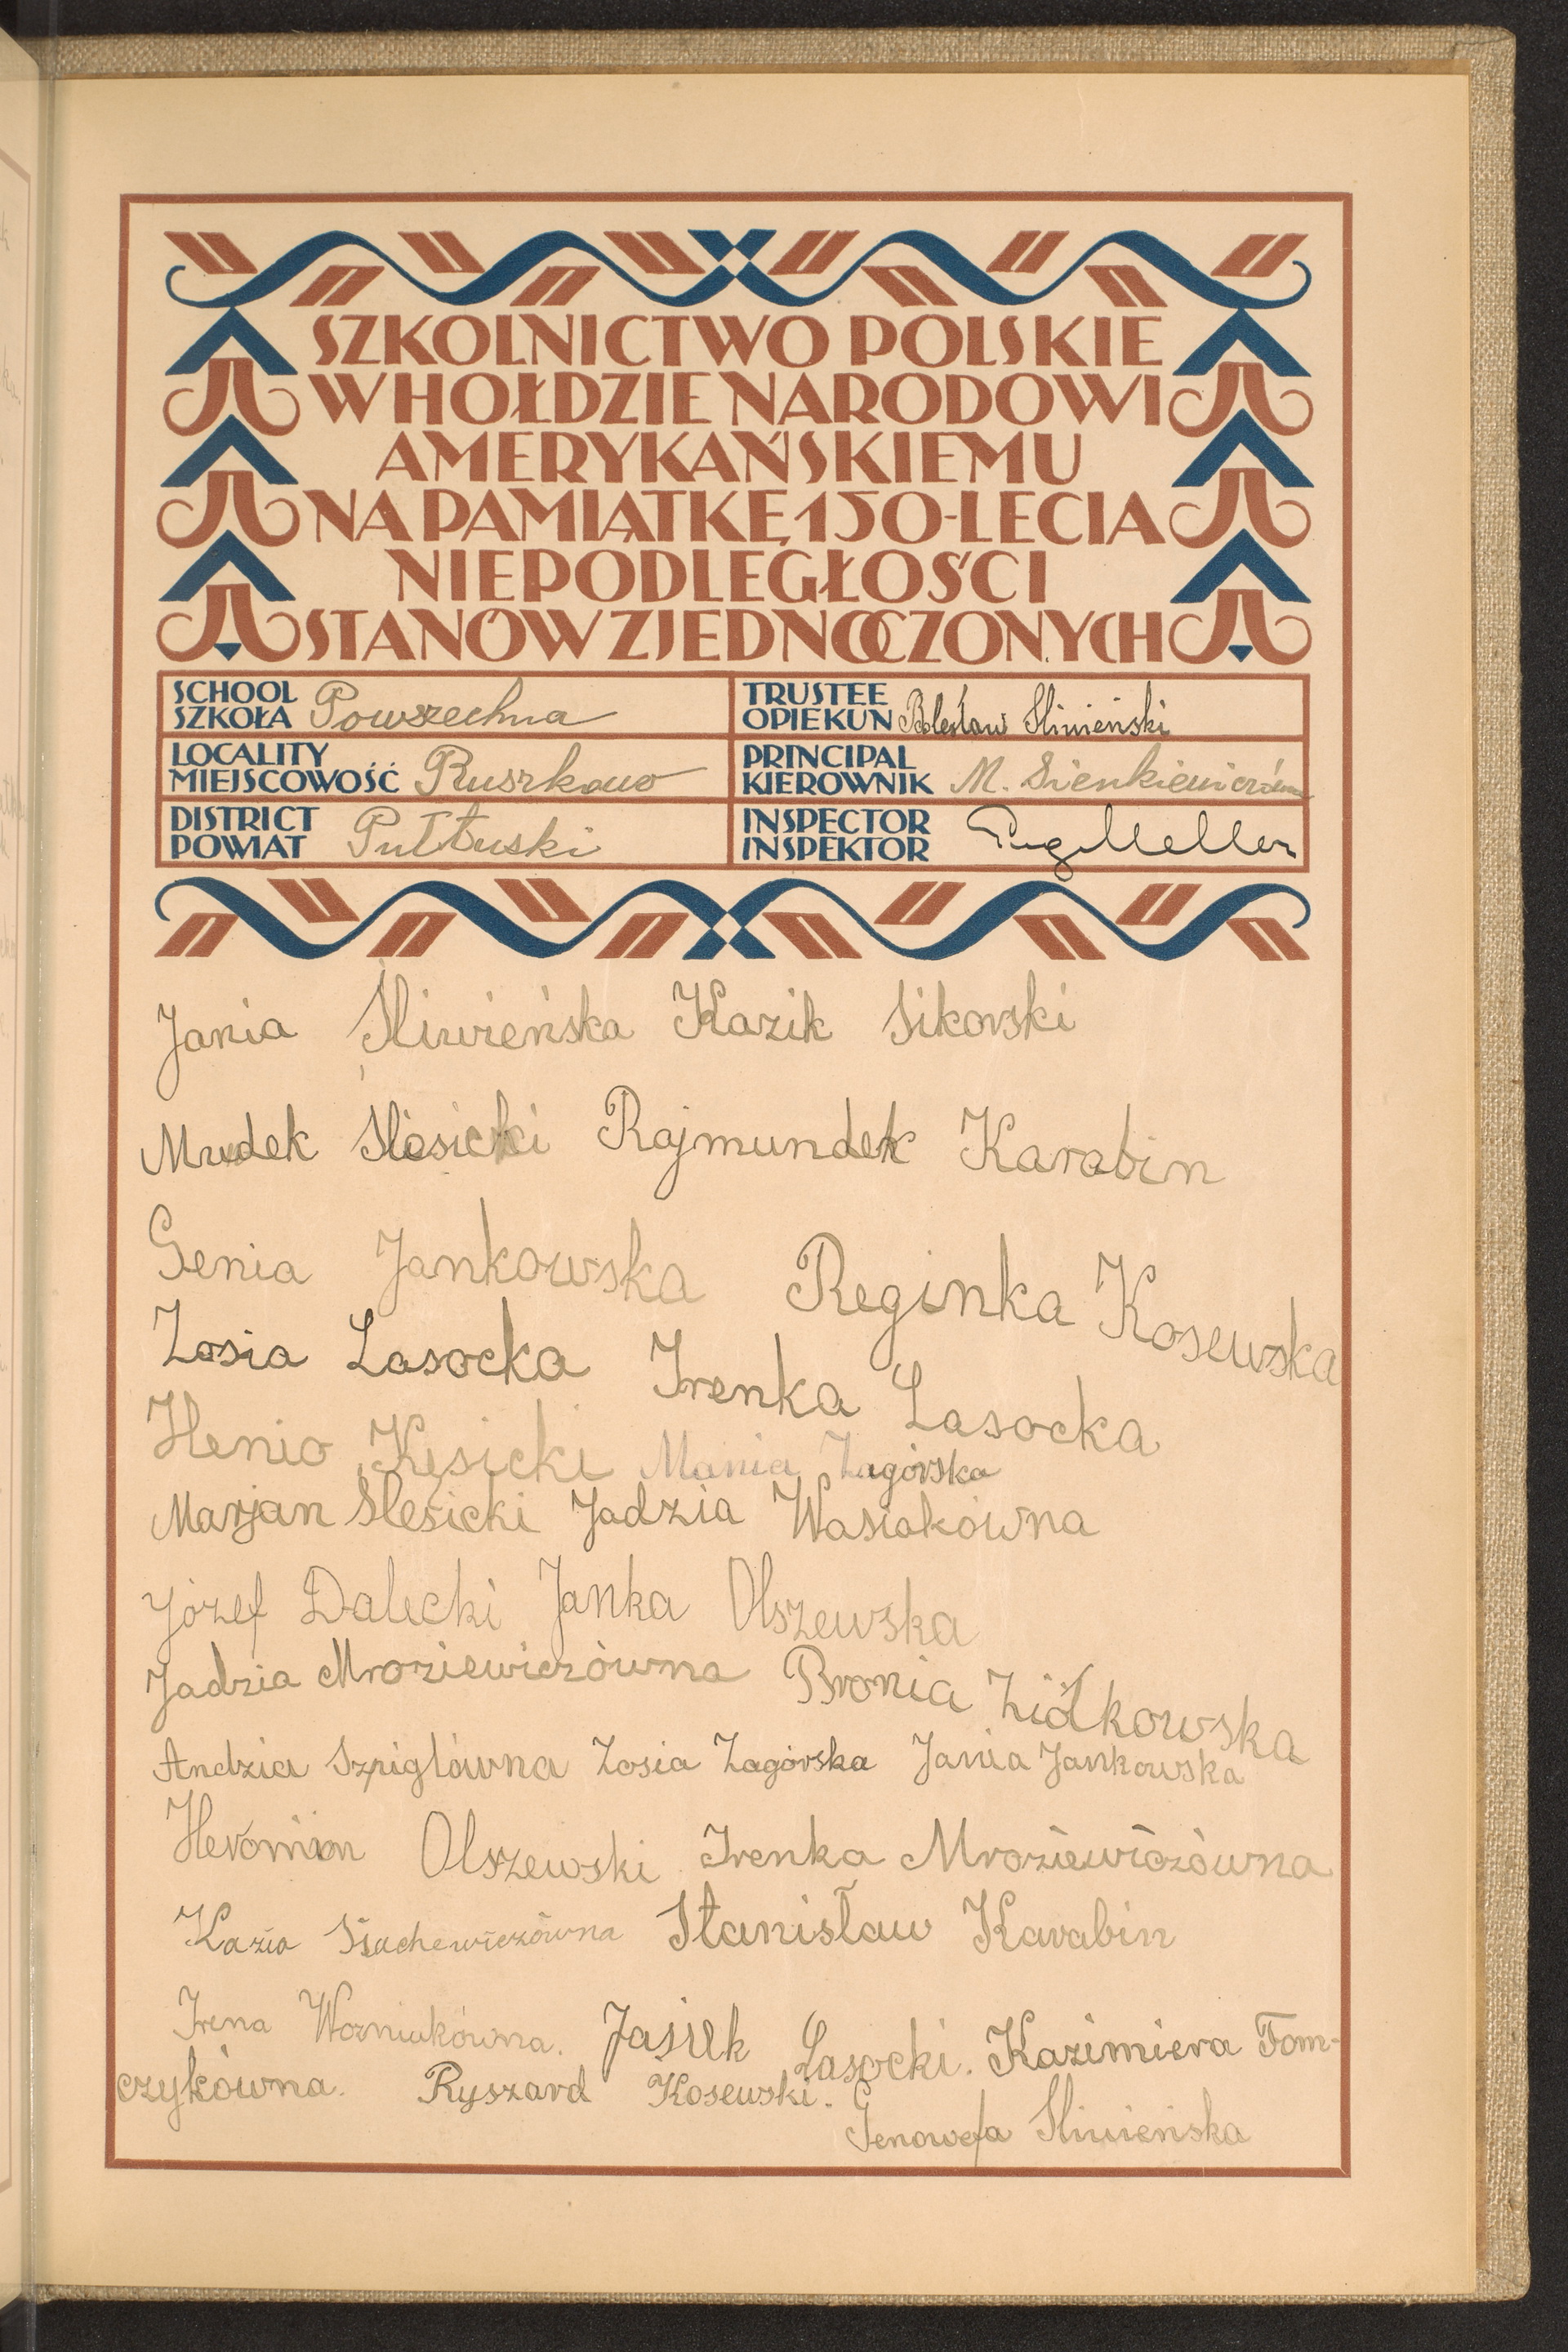 SZKOLNICTWO POLSKIE
W HOŁDZIE NARODOWI
AMERYKAŃSKIEMU
NA PAMIĄTKĘ 150-LECIA
NIEPODLEGŁOŚCI
STANÓW ZJEDNOCZONYCH
SCHOOL
SZKOŁA Powszechna
TRUSTEE
OPIEKUN Bolesław Śliwieński
LOCALITY
MIEJSCOWOŚĆ Ruszkowo
PRINCIPAL
KIEROWNIK M. Sienkiewiczówna
DISTRICT
POWIAT Pułtuski
INSPECTOR
INSPEKTOR
Jania Śliwieńska Kazik Sikorski
Mundek Ślesicki Rajmundek Karabin
Genia Jankowska Reginka Kosewska
Zosia Lasocka Irenka Lasocka
Henio Kęsicki Mania Zagórska
Marjan Slesicki Jadzia Wasiakówna
Józef Dalecki Janka Olszewska
Jadzia Mroziewiczówna Bronia Ziółkowska
Andzia Szpiglówna Zosia Zagórska Jania Jankowska
Olszewski Irenka Mroziewiczówna
Kazia Stanisław Karabin
Irena Wozniakówna. Jasiek Lasocki. Kazimiera Tom-
czykówna. Ryszard Kosewski.
Genowefa Śliwieńska